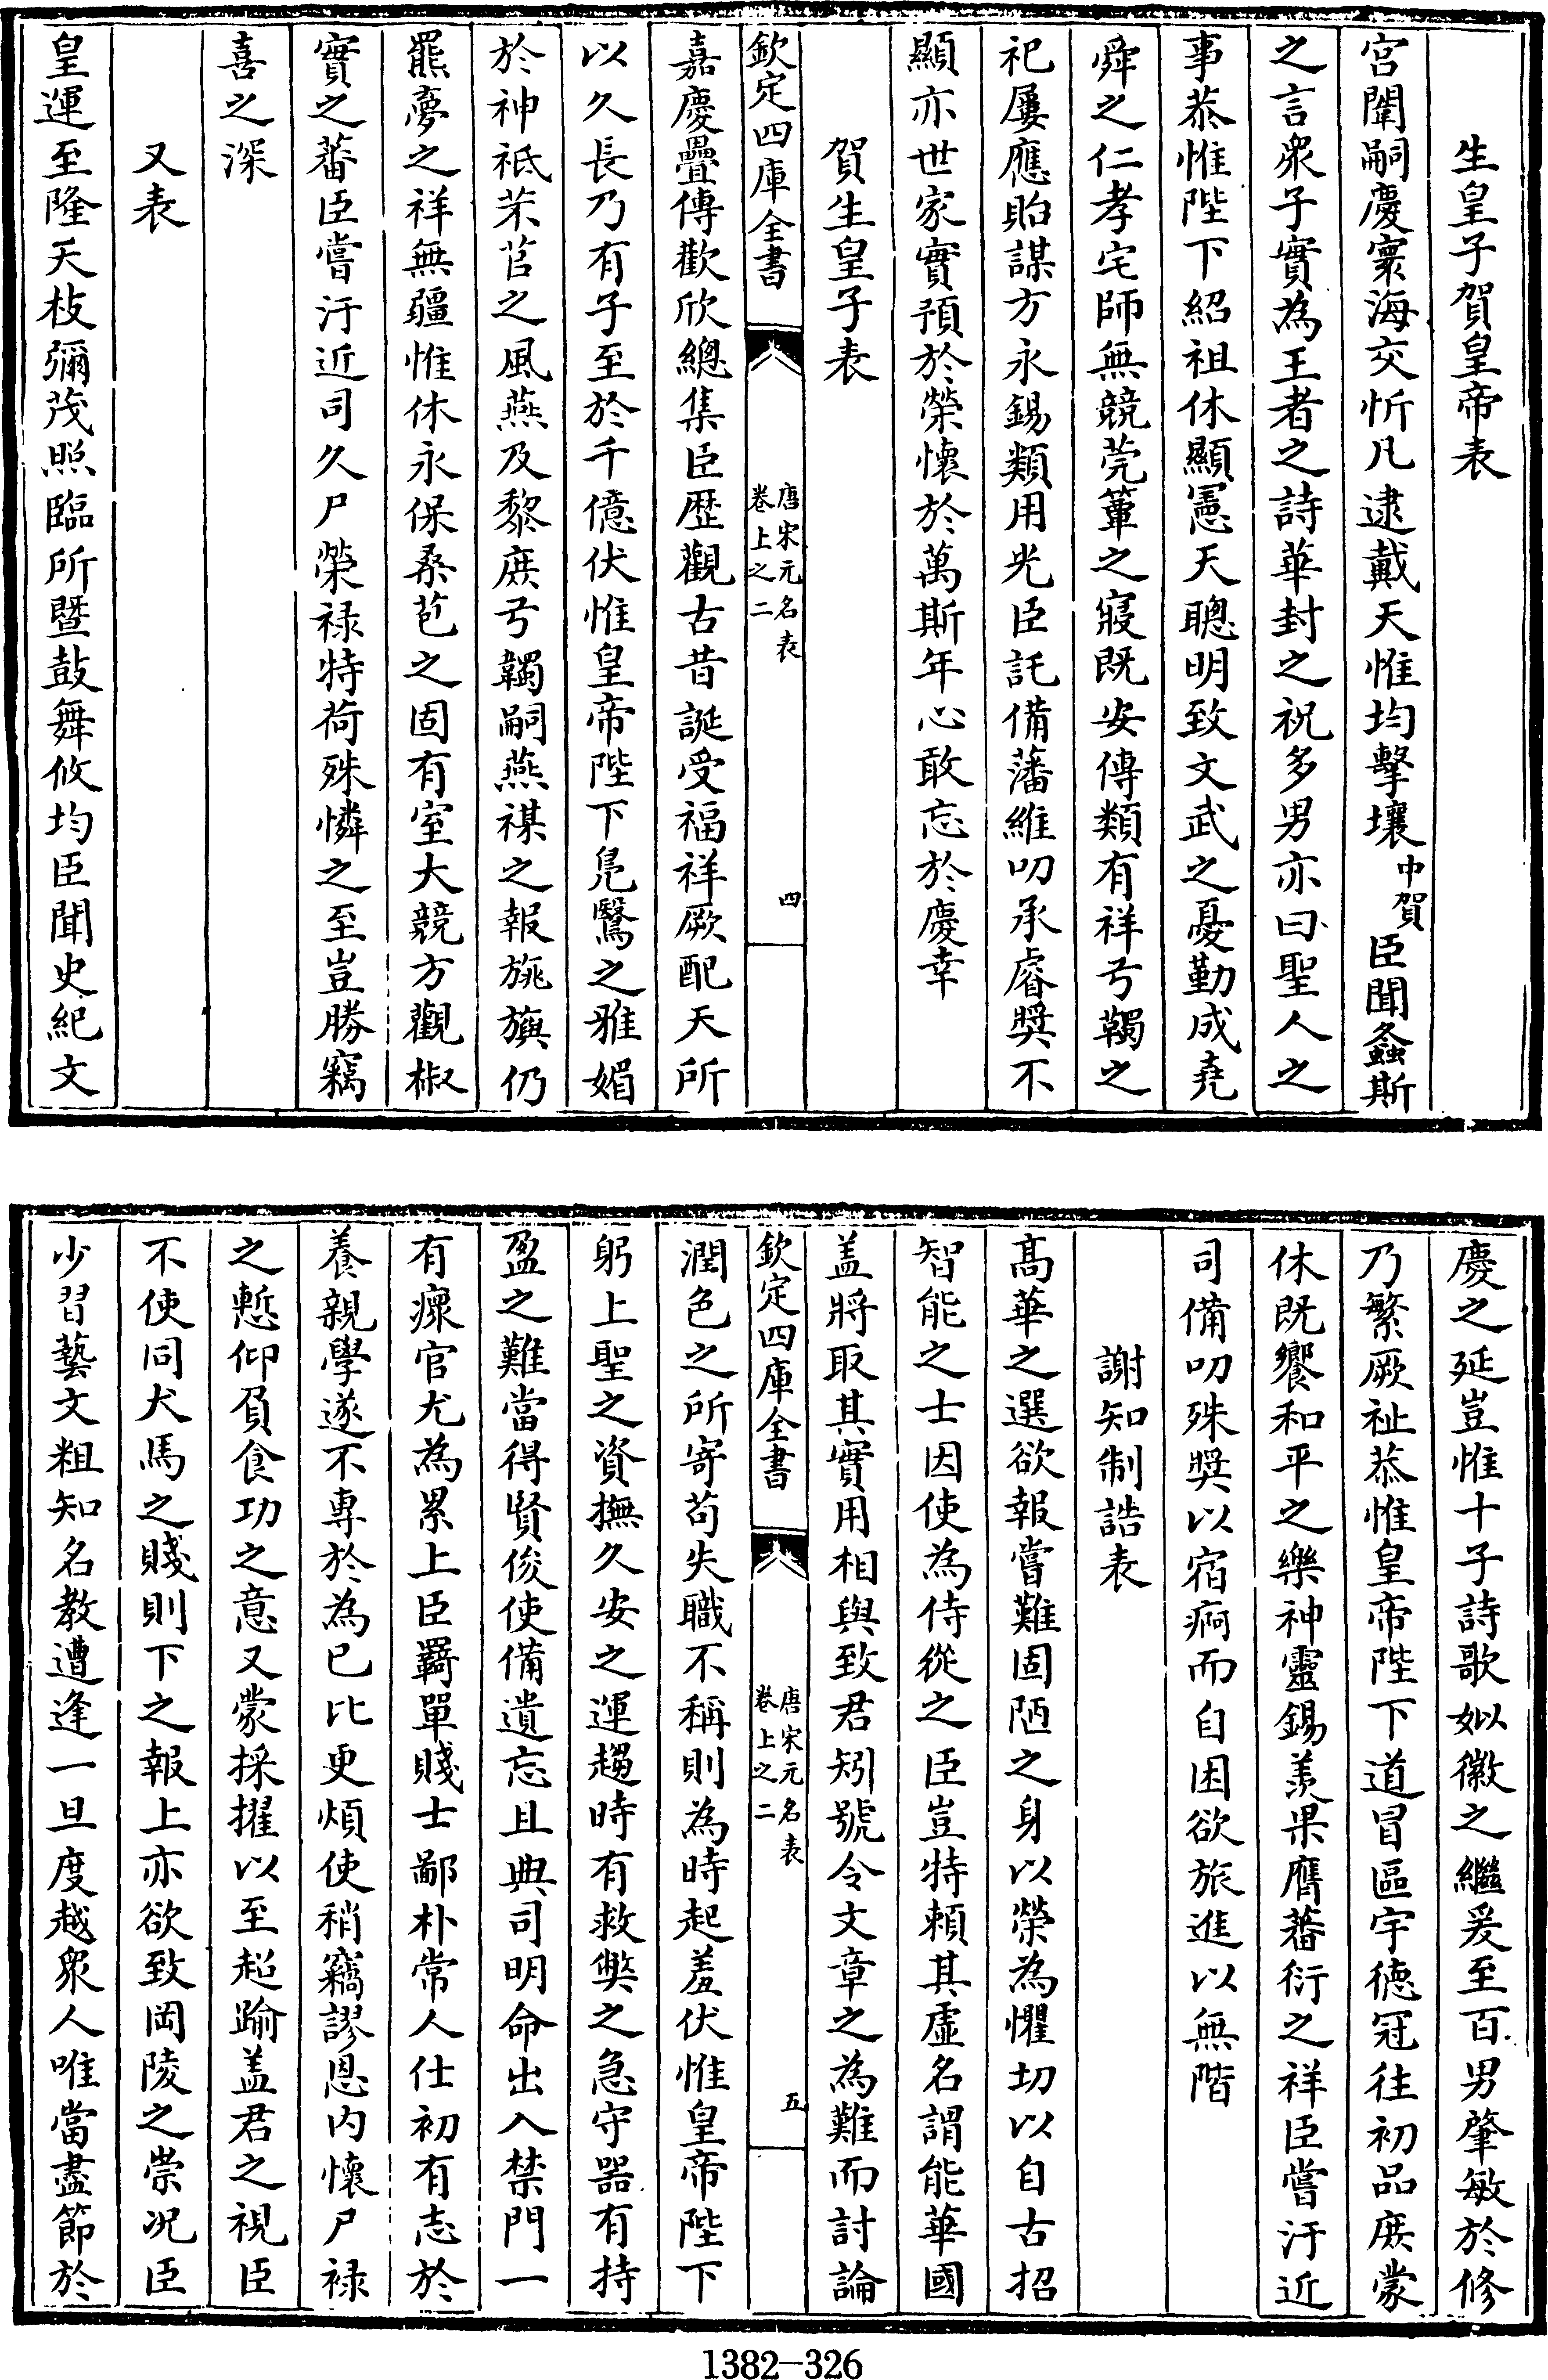 生皇子賀皇帝表
宫闈嗣慶寰海交忻凡逮戴天惟均擊壤中賀臣聞螽斯
之言衆子實為王者之詩華封之祝多男亦曰聖人之
事恭惟陛下紹祖休顯憲天聰明致文武之憂勤成堯
舜之仁孝宅師無競莞蕇之寢既安傳類有祥弓韣之
祀屢應貽謀方永錫類用光臣託備藩維叨承睿奬不
顯亦世家實預於榮懷於萬斯年心敢忘於慶幸
賀生皇子表
欽定四庫全書
唐宋元名表
卷上之二
四
嘉慶疊傳歡欣總集臣歷觀古昔誕受福祥厥配天所
以久長乃有子至於千億伏惟皇帝陛下凫鷖之雅媚
於神祇芣苢之風燕及黎庶弓韣嗣燕禖之報旐旟仍
羆夢之祥無疆惟休永保桑苞之固有室大競方觀椒
實之蕃臣嘗汙近司久尸榮禄特荷殊憐之至豈勝竊
喜之深
又表
皇運至隆天枝彌茂照臨所暨鼓舞攸均臣聞史紀文
慶之延豈惟十子詩歌姒徽之繼爰至百男肇敏於修
乃繁厥祉恭惟皇帝陛下道冒區宇徳冠往初品庶蒙
休既饗和平之樂神靈錫羨果膺蕃衍之祥臣嘗汙近
司備叨殊奬以宿痾而自困欲旅進以無階
謝知制誥表
高華之選欲報嘗難固陋之身以榮為懼切以自古招
智能之士因使為侍從之臣豈特賴其虚名謂能華國
盖將取其實用相與致君矧號令文章之為難而討論
欽定四庫全書
唐宋元名表
卷上之二
五
潤色之所寄苟失職不稱則為時起羞伏惟皇帝陛下
躬上聖之資撫久安之運趨時有救弊之急守器有持
盈之難當得賢俊使備遺忘且典司明命出入禁門一
有瘝官尤為累上臣羇單賤士鄙朴常人仕初有志於
養親學遂不專於為已比更煩使稍竊謬恩内懷尸禄
之慙仰負食功之意又蒙採擢以至超踰盖君之視臣
不使同犬馬之賤則下之報上亦欲致岡陵之崇况臣
少習藝文粗知名教遭逢一旦度越衆人唯當盡節於
1382-326